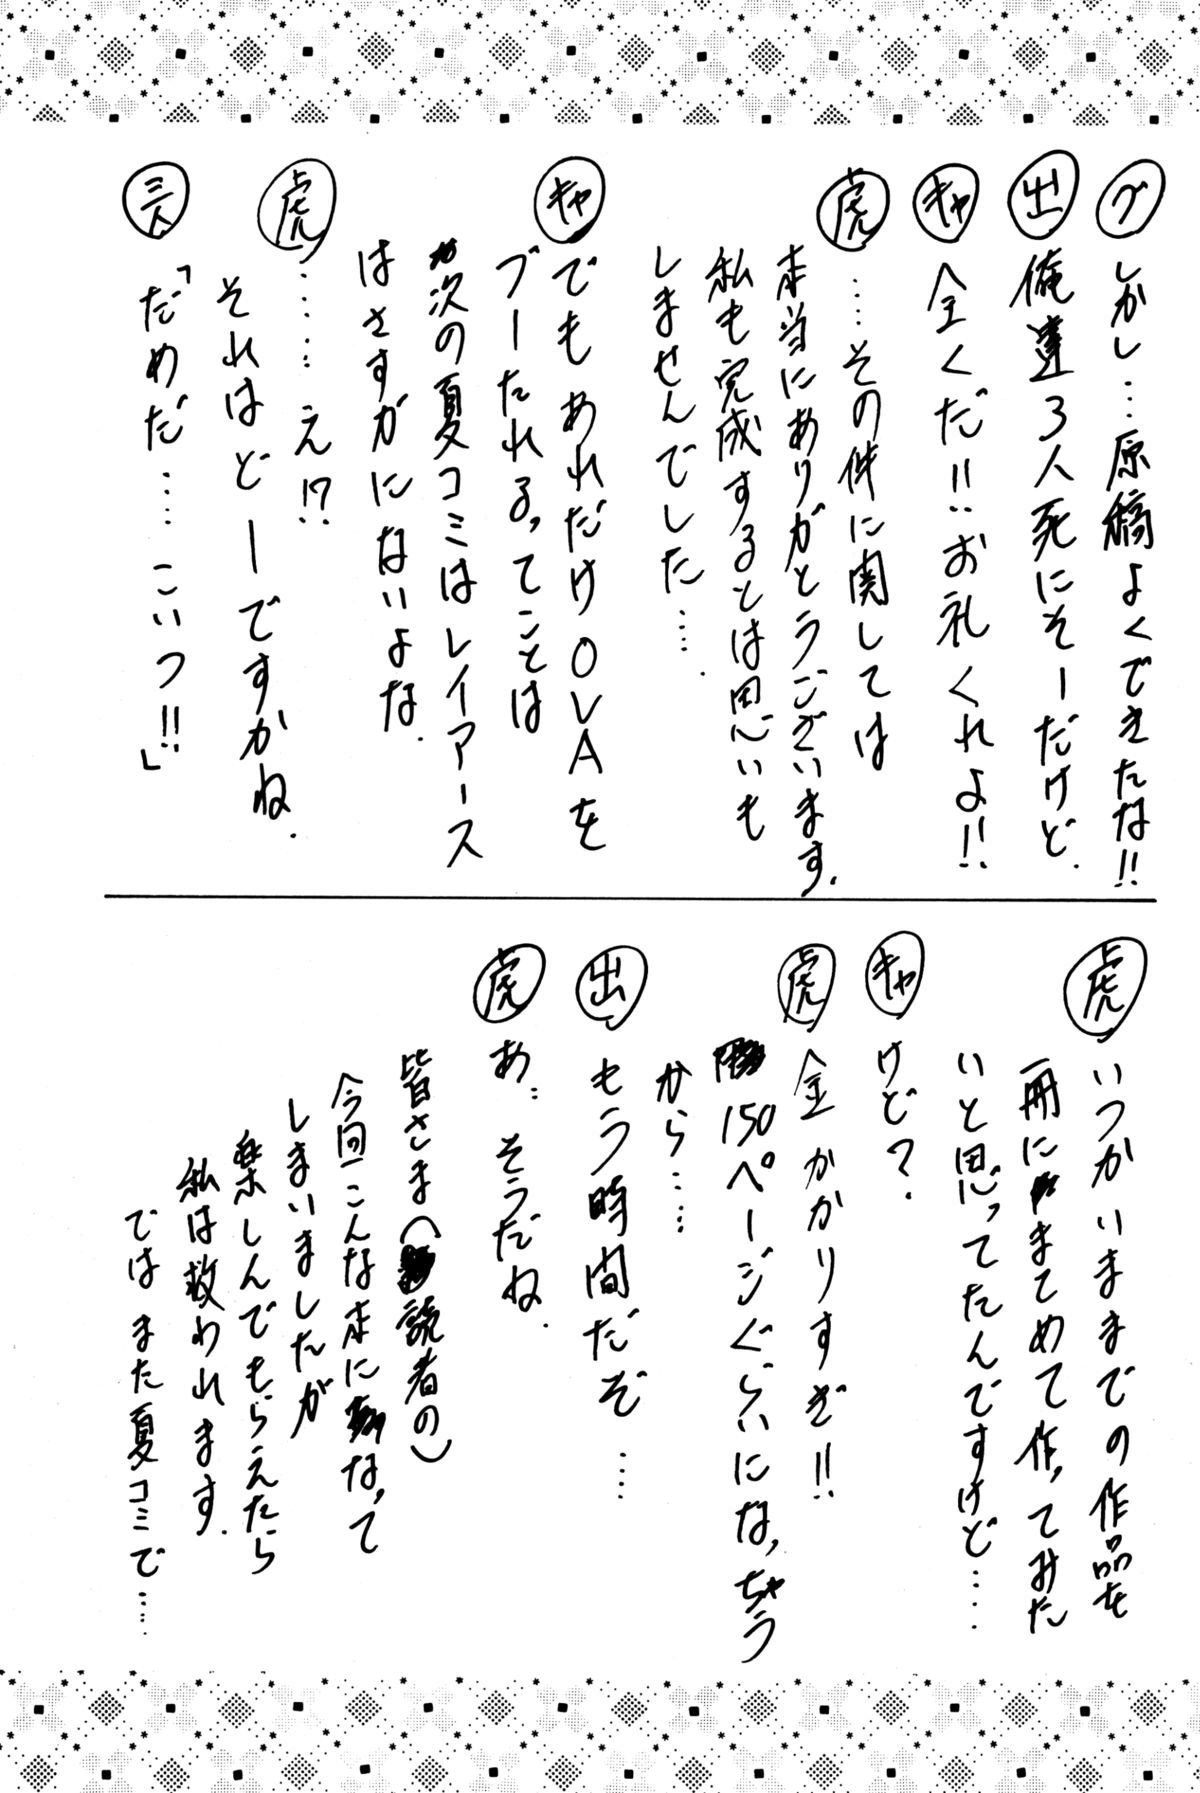 グ しかし…原稿よくできたな!!
出 俺達3人死にそーだけど.
キャ 全くだ!!お礼くれよ!!
虎 ……その件に関しては
本当にありがとうございます.
私も完成するとは思いも
しませんでした….
キャ でもあれだけOVAを
ブーたれるってことは
次の夏コミはレイアース
はさすがにないよな.
虎 ……え!?
それはどーですかね.
三人 「だめだ……こいつ!!」
虎 いつかいままでの作品を
一冊にまとめて作ってみた
いと思ってたんですけど……
キャ けど?.
虎 金かかりすぎ!!
150ページぐらいになっちゃう
から……
出 もう時間だぞ…
虎 あ、そうだね.
皆さま(読者の)
今回こんな本になって
しまいましたが
楽しんでもらえたら
私は救われます.
ではまた夏コミで……